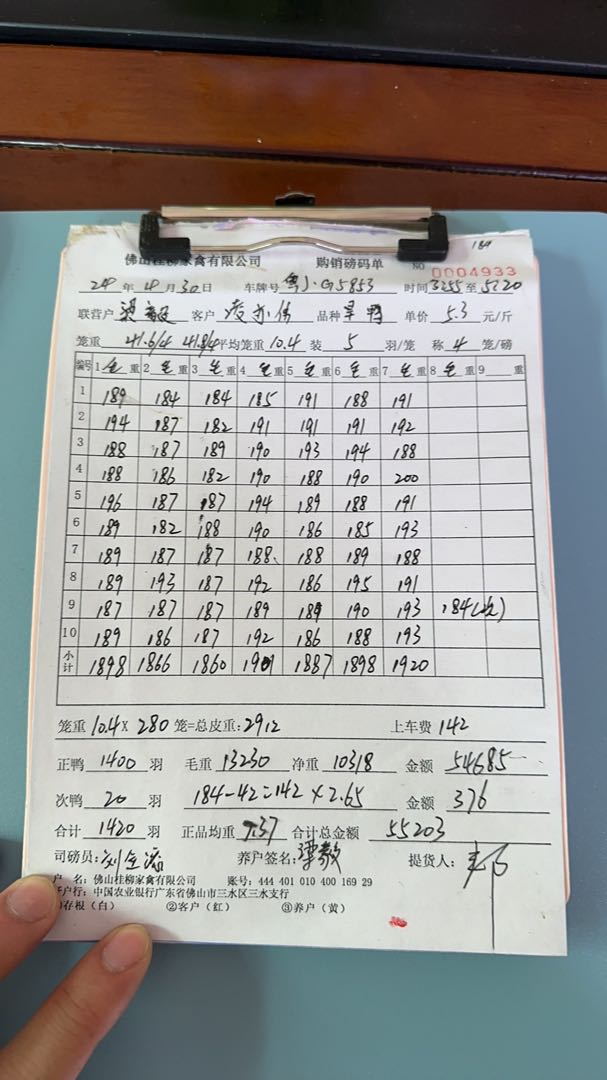 184
佛山桂柳家禽有限公司 购销磅码单 NO 0004933
24 年 4 月 30 日 车牌号 粤J·G5853 时间 3255 至 5120
联营户 客户 品种 旱鸭 单价 5.3 元/斤
笼重 41.6/4 41.8/4 平均笼重 10.4 装 5 羽/笼 称 4 笼/磅
编号 1 毛 重 2 毛 重 3 毛 重 4 毛 重 5 毛 重 6 毛 重 7 毛 重 8 毛 重 9 重
1 189 184 184 185 191 188 191
2 194 187 182 191 191 191 192
3 188 187 189 190 193 194 188
4 188 186 182 190 188 190 200
5 196 187 187 194 189 188 191
6 189 182 188 190 186 185 193
7 189 187 187 188 188 189 188
8 189 193 187 192 186 195 191
9 187 187 187 189 189 190 193 184(次)
10 189 186 187 192 186 188 193
小计 1898 1866 1860 1901 1887 1898 1920
笼重 10.4 × 280 笼=总皮重: 2912 上车费 142
正鸭 1400 羽 毛重 13230 净重 10318 金额 54685
次鸭 20 羽 184-42=142×2.65 金额 376
合计 1420 羽 正品均重 7.37 合计总金额 55203
司磅员: 养户签名: 提货人:
户 名: 佛山桂柳家禽有限公司 账号: 444 401 010 400 169 29
开户行: 中国农业银行广东省佛山市三水区三水支行
存根(白) ②客户(红) ③养户(黄)